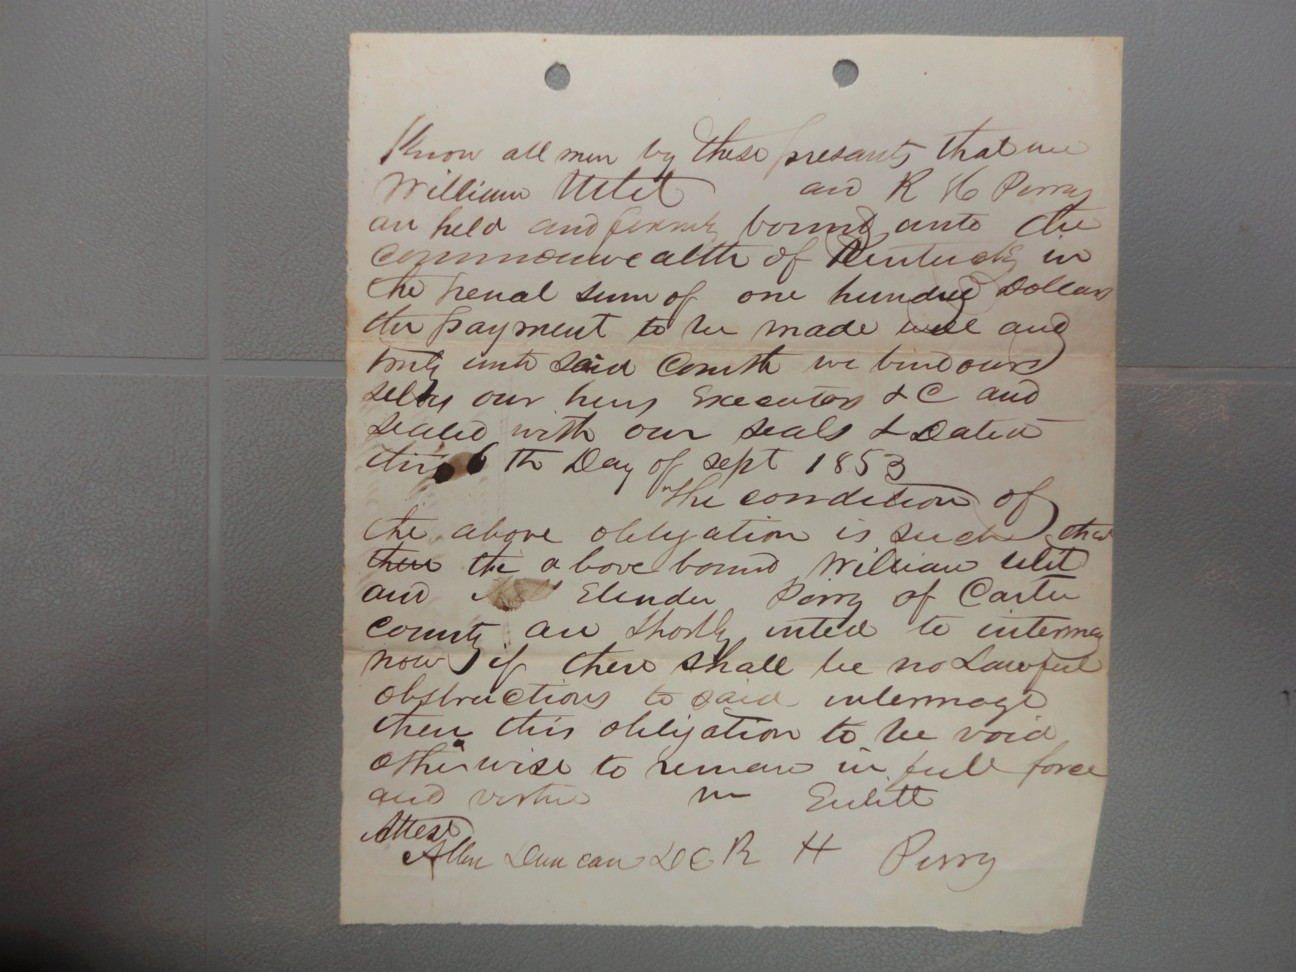 Know all men by these presants that we
William Ulit and R H Perry
are held and firmly bound unto the
commonwealth of Kentucky in
the penal sum of one hundred Dollars
the payment to be made well and
truly unto said Comth we bind our
selvs our heirs Executors & C and
sealed with our seals & Dated
this 6 th Day of sept 1853
The condition of
the above obligation is such that
the above bound William Ulit
and Elender Perry of Carter
county are shortly inted to intermay
now if there shall be no Lawful
obstructions to said intermage
then this obligation to be void
otherwise to remain in full force
and virtue Wm Eulitt
Attest
Allen Duncan R H Perry